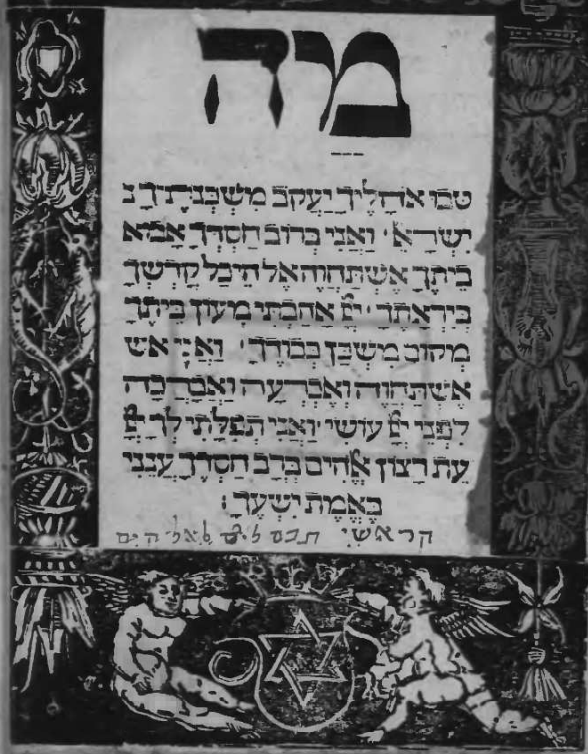 מה
טבו אהליך יעקב משכנתיך
ישרא' ואני ברוב חסדך אבוא
ביתך אשתחוה אל היכל קדשך
ביראתך ' יי אהבתי מעון ביתך
מקום משכן כבודך ' ואני אש
אשתחוה ואכרעה ואברכה
לפני יי עושי ואני תפלתי לך יי
עת רצון אלהים ברב חסדך ענני
באמת ישעך: